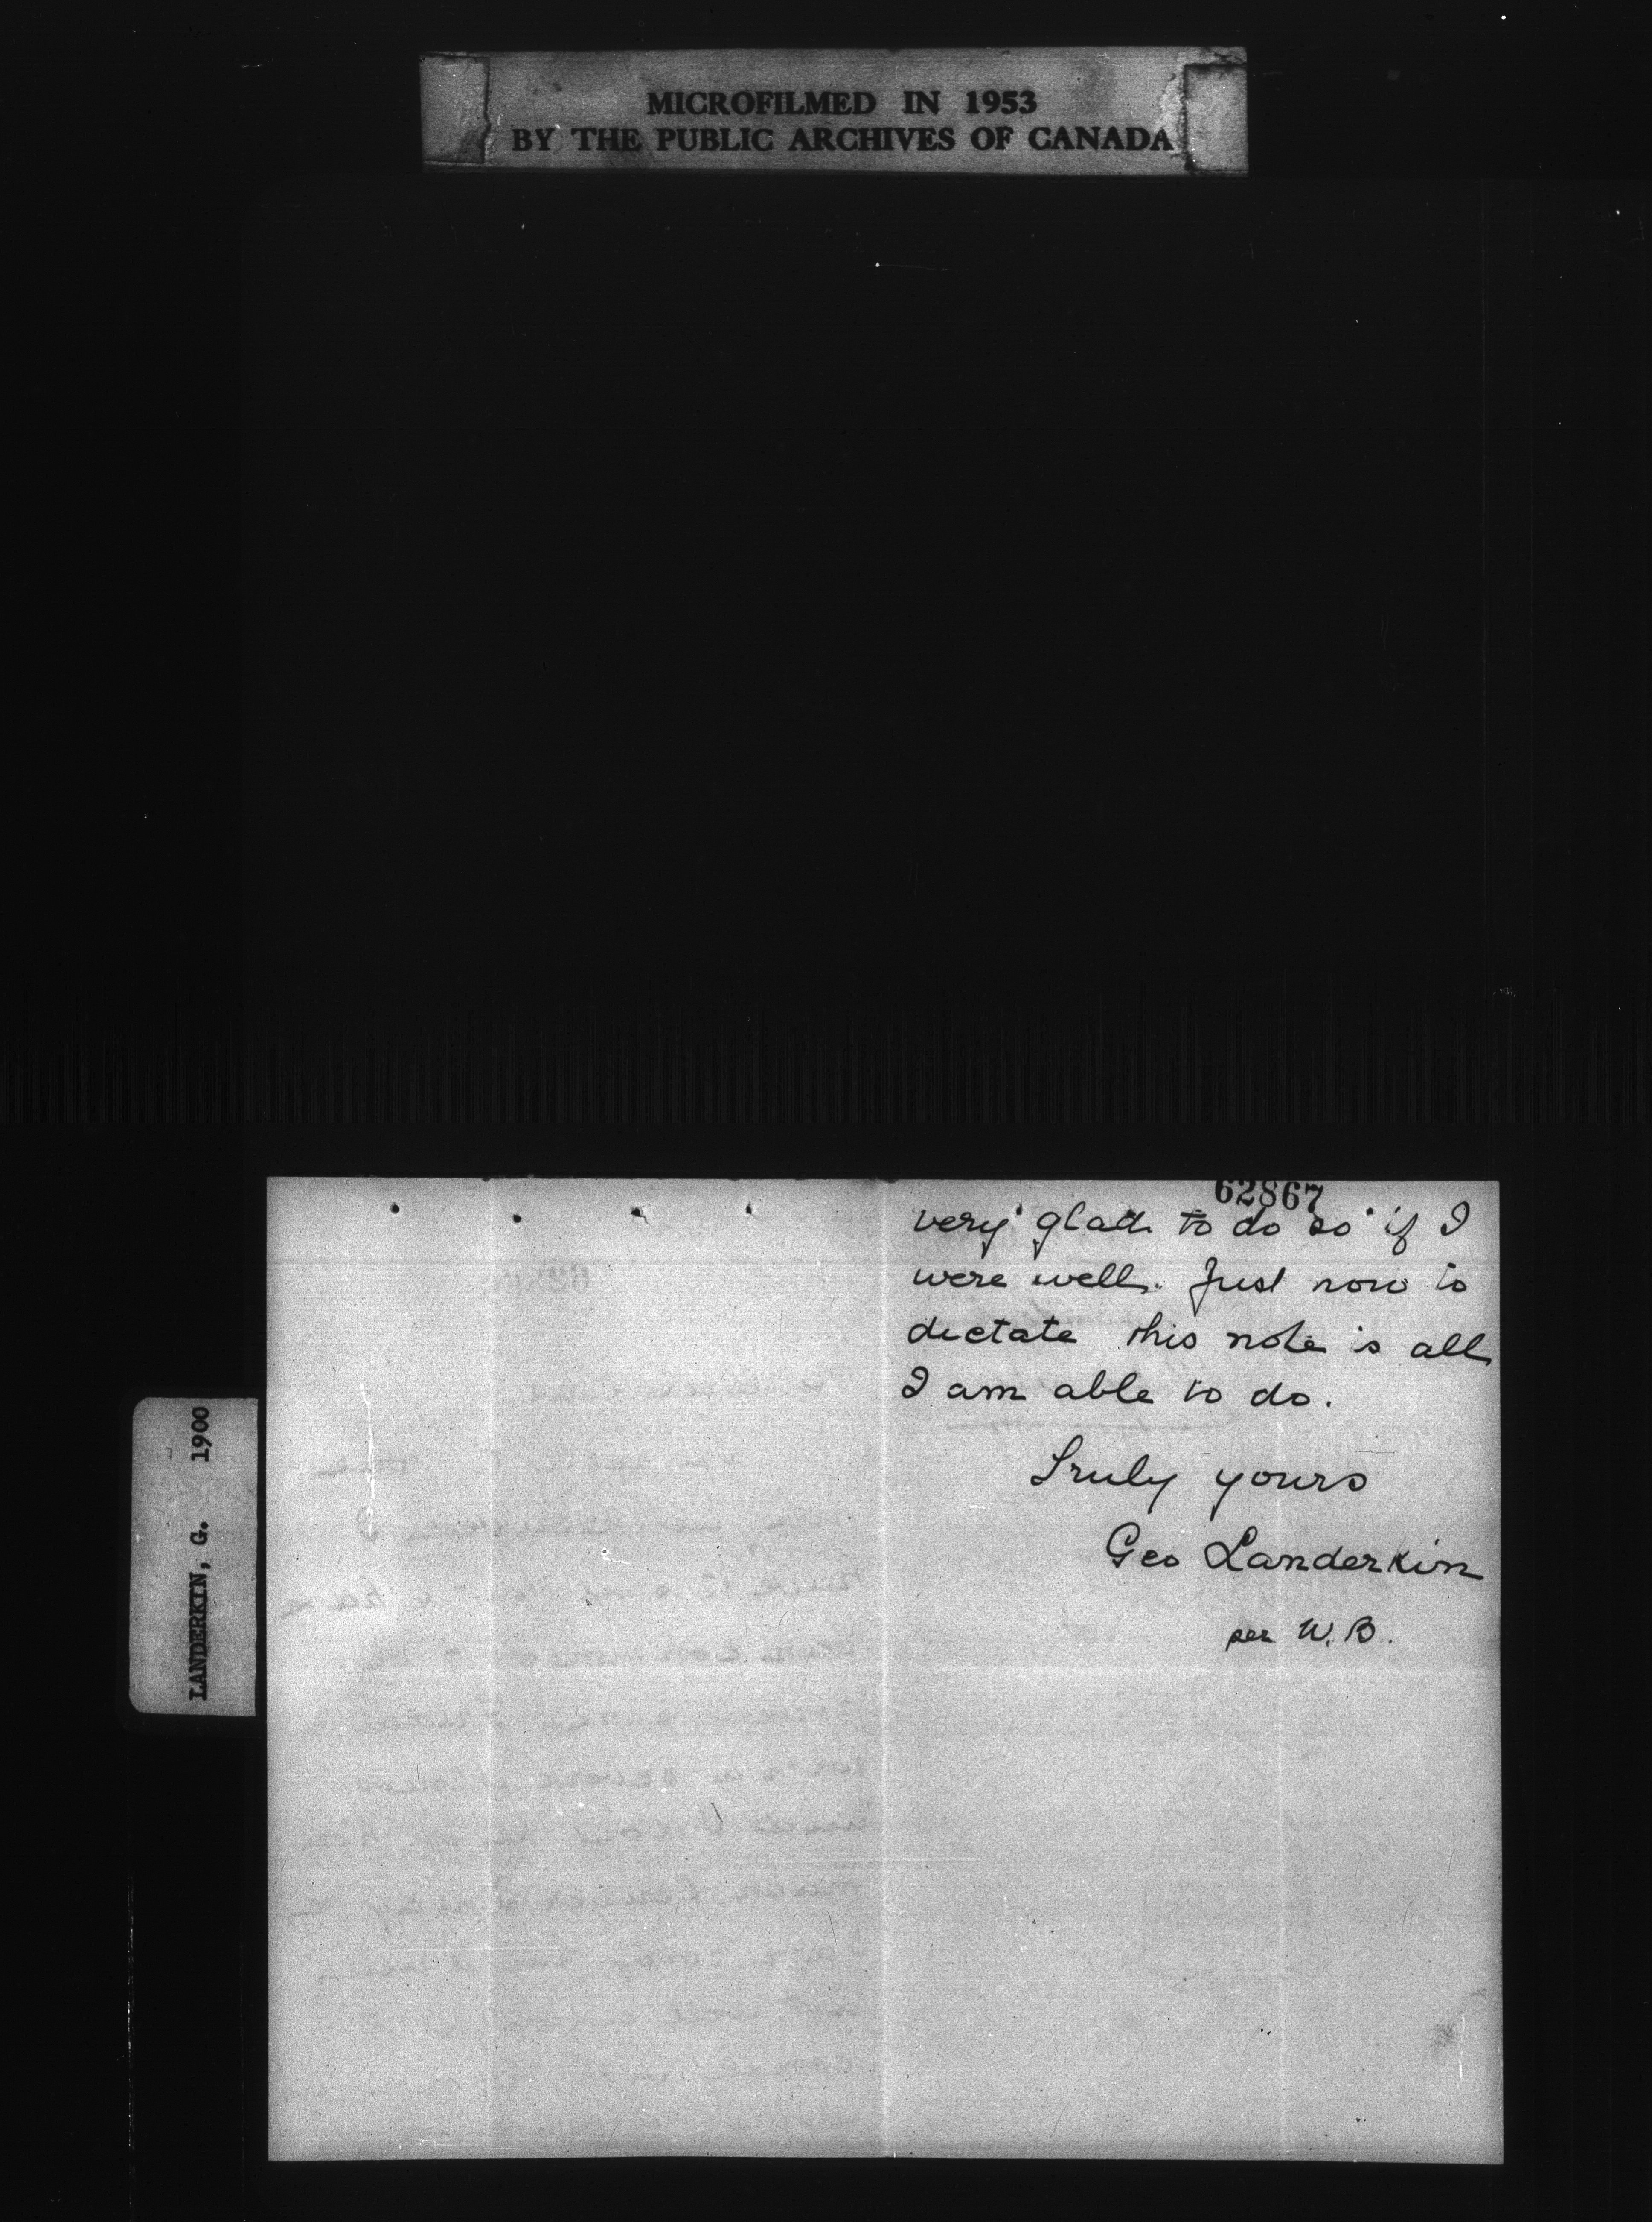 MICROFILMED IN 1953
BY THE PUBLIC ARCHIVES OF CANADA
LANDERKIN, G. 1900
62867
very glad to do so if I
were well. Just now to
dictate this note is all
I am able to do.
Truly yours
Geo Landerkin
per W. B.